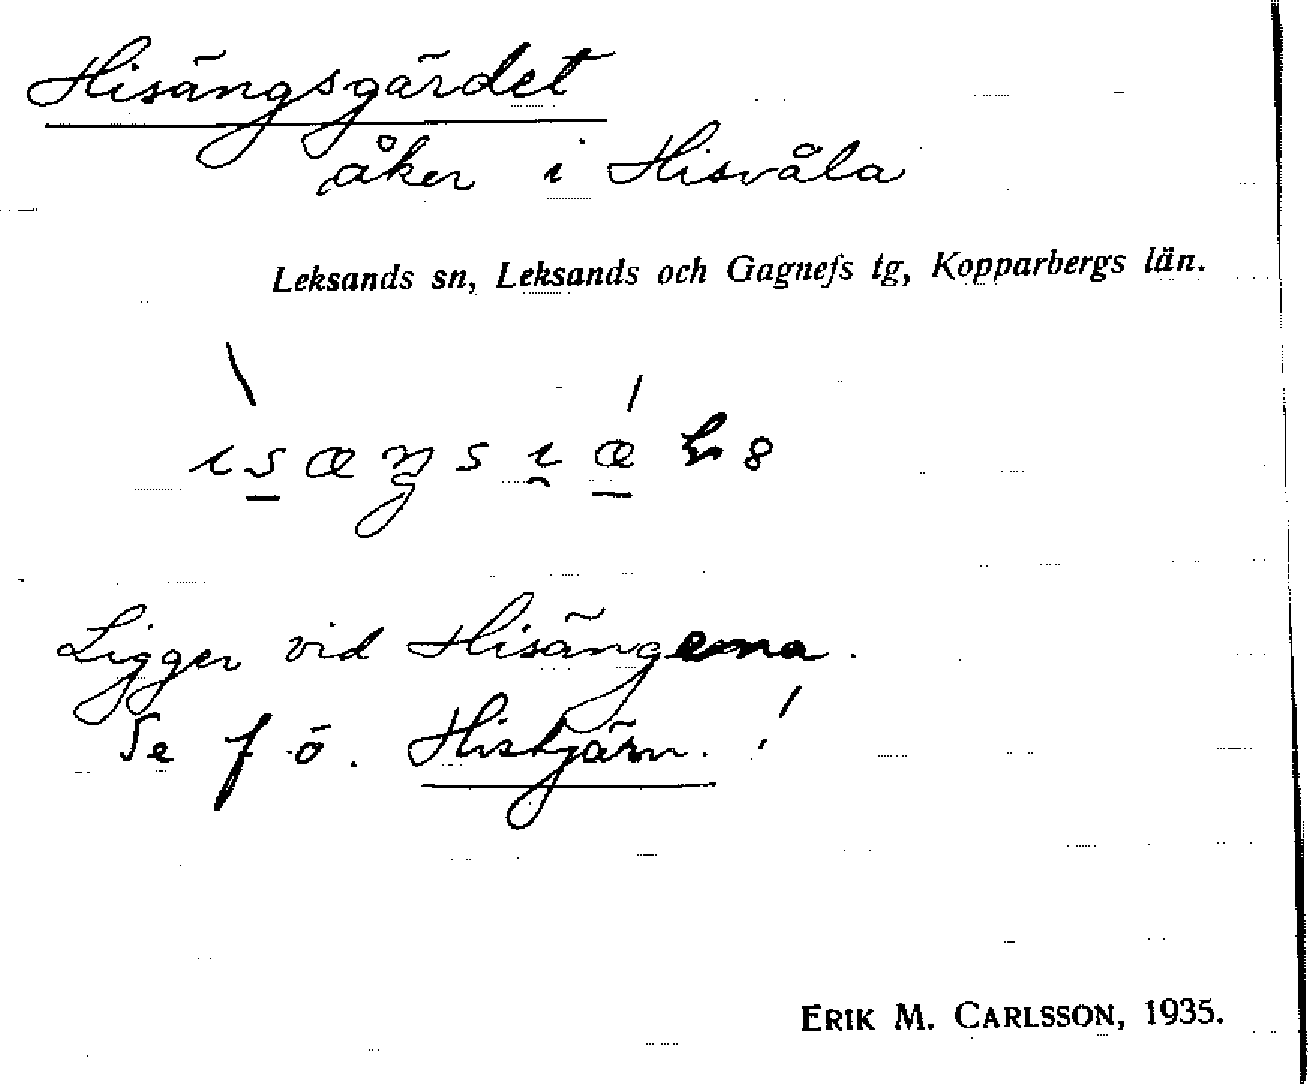 Hisängsgärdet
åker i Hisvåla
Leksands sn, Leksands och Gagnefs tg, Kopparbergs län.
Ligger vid Hisängerna.
Se f ö. Histjärn. !
ERIK M. CARLSSON, 1935.